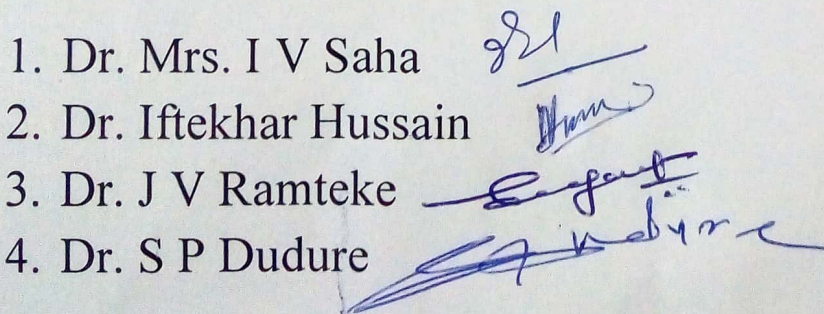 1. Dr. Mrs. I V Saha
2. Dr. Iftekhar Hussain
3. Dr. J V Ramteke
4. Dr. S P Dudure